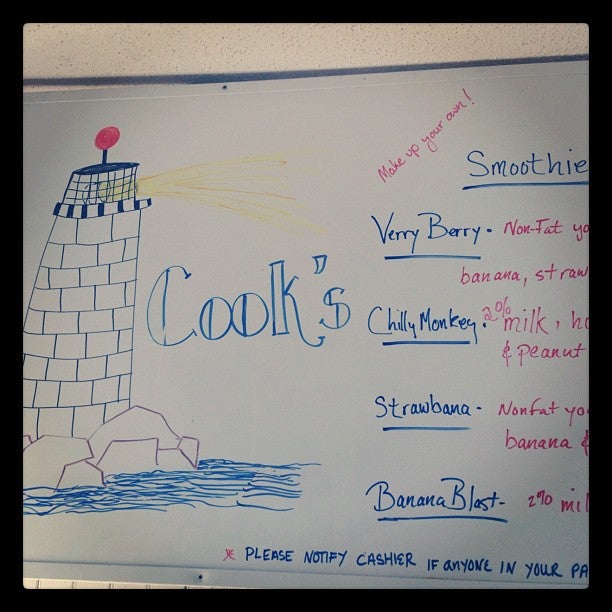 Make up your own!
Smoothie
Verry Berry - Non-Fat yo
banana, straw
Cook's
Chilly Monkey - 2% milk, ho
& peanut
Strawbana - Nonfat yo
banana &
Banana Blast - 2% mil
* PLEASE NOTIFY CASHIER IF ANYONE IN YOUR PA